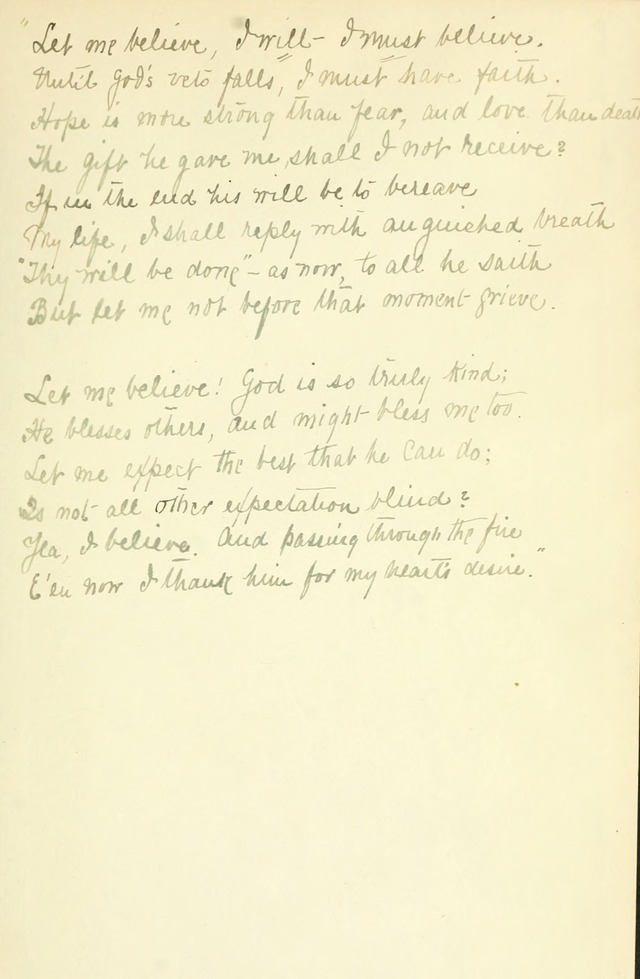 "Let me believe, I will – I must believe.
Until God's veto falls, I must have faith.
Hope is more strong than fear, and love than death
The gift he gave me, shall I not receive?
If in the end his will be to bereave
My life, I shall reply with anguished breath
"Thy will be done" – as now, to all he saith
But let me not before that moment grieve.

Let me believe! God is so truly kind;
He blesses others, and might bless me too.
Let me expect the best that he can do;
Is not all other expectation blind?
Yea, I believe. And passing through the fire
E'en now I thank him for my heart's desire."